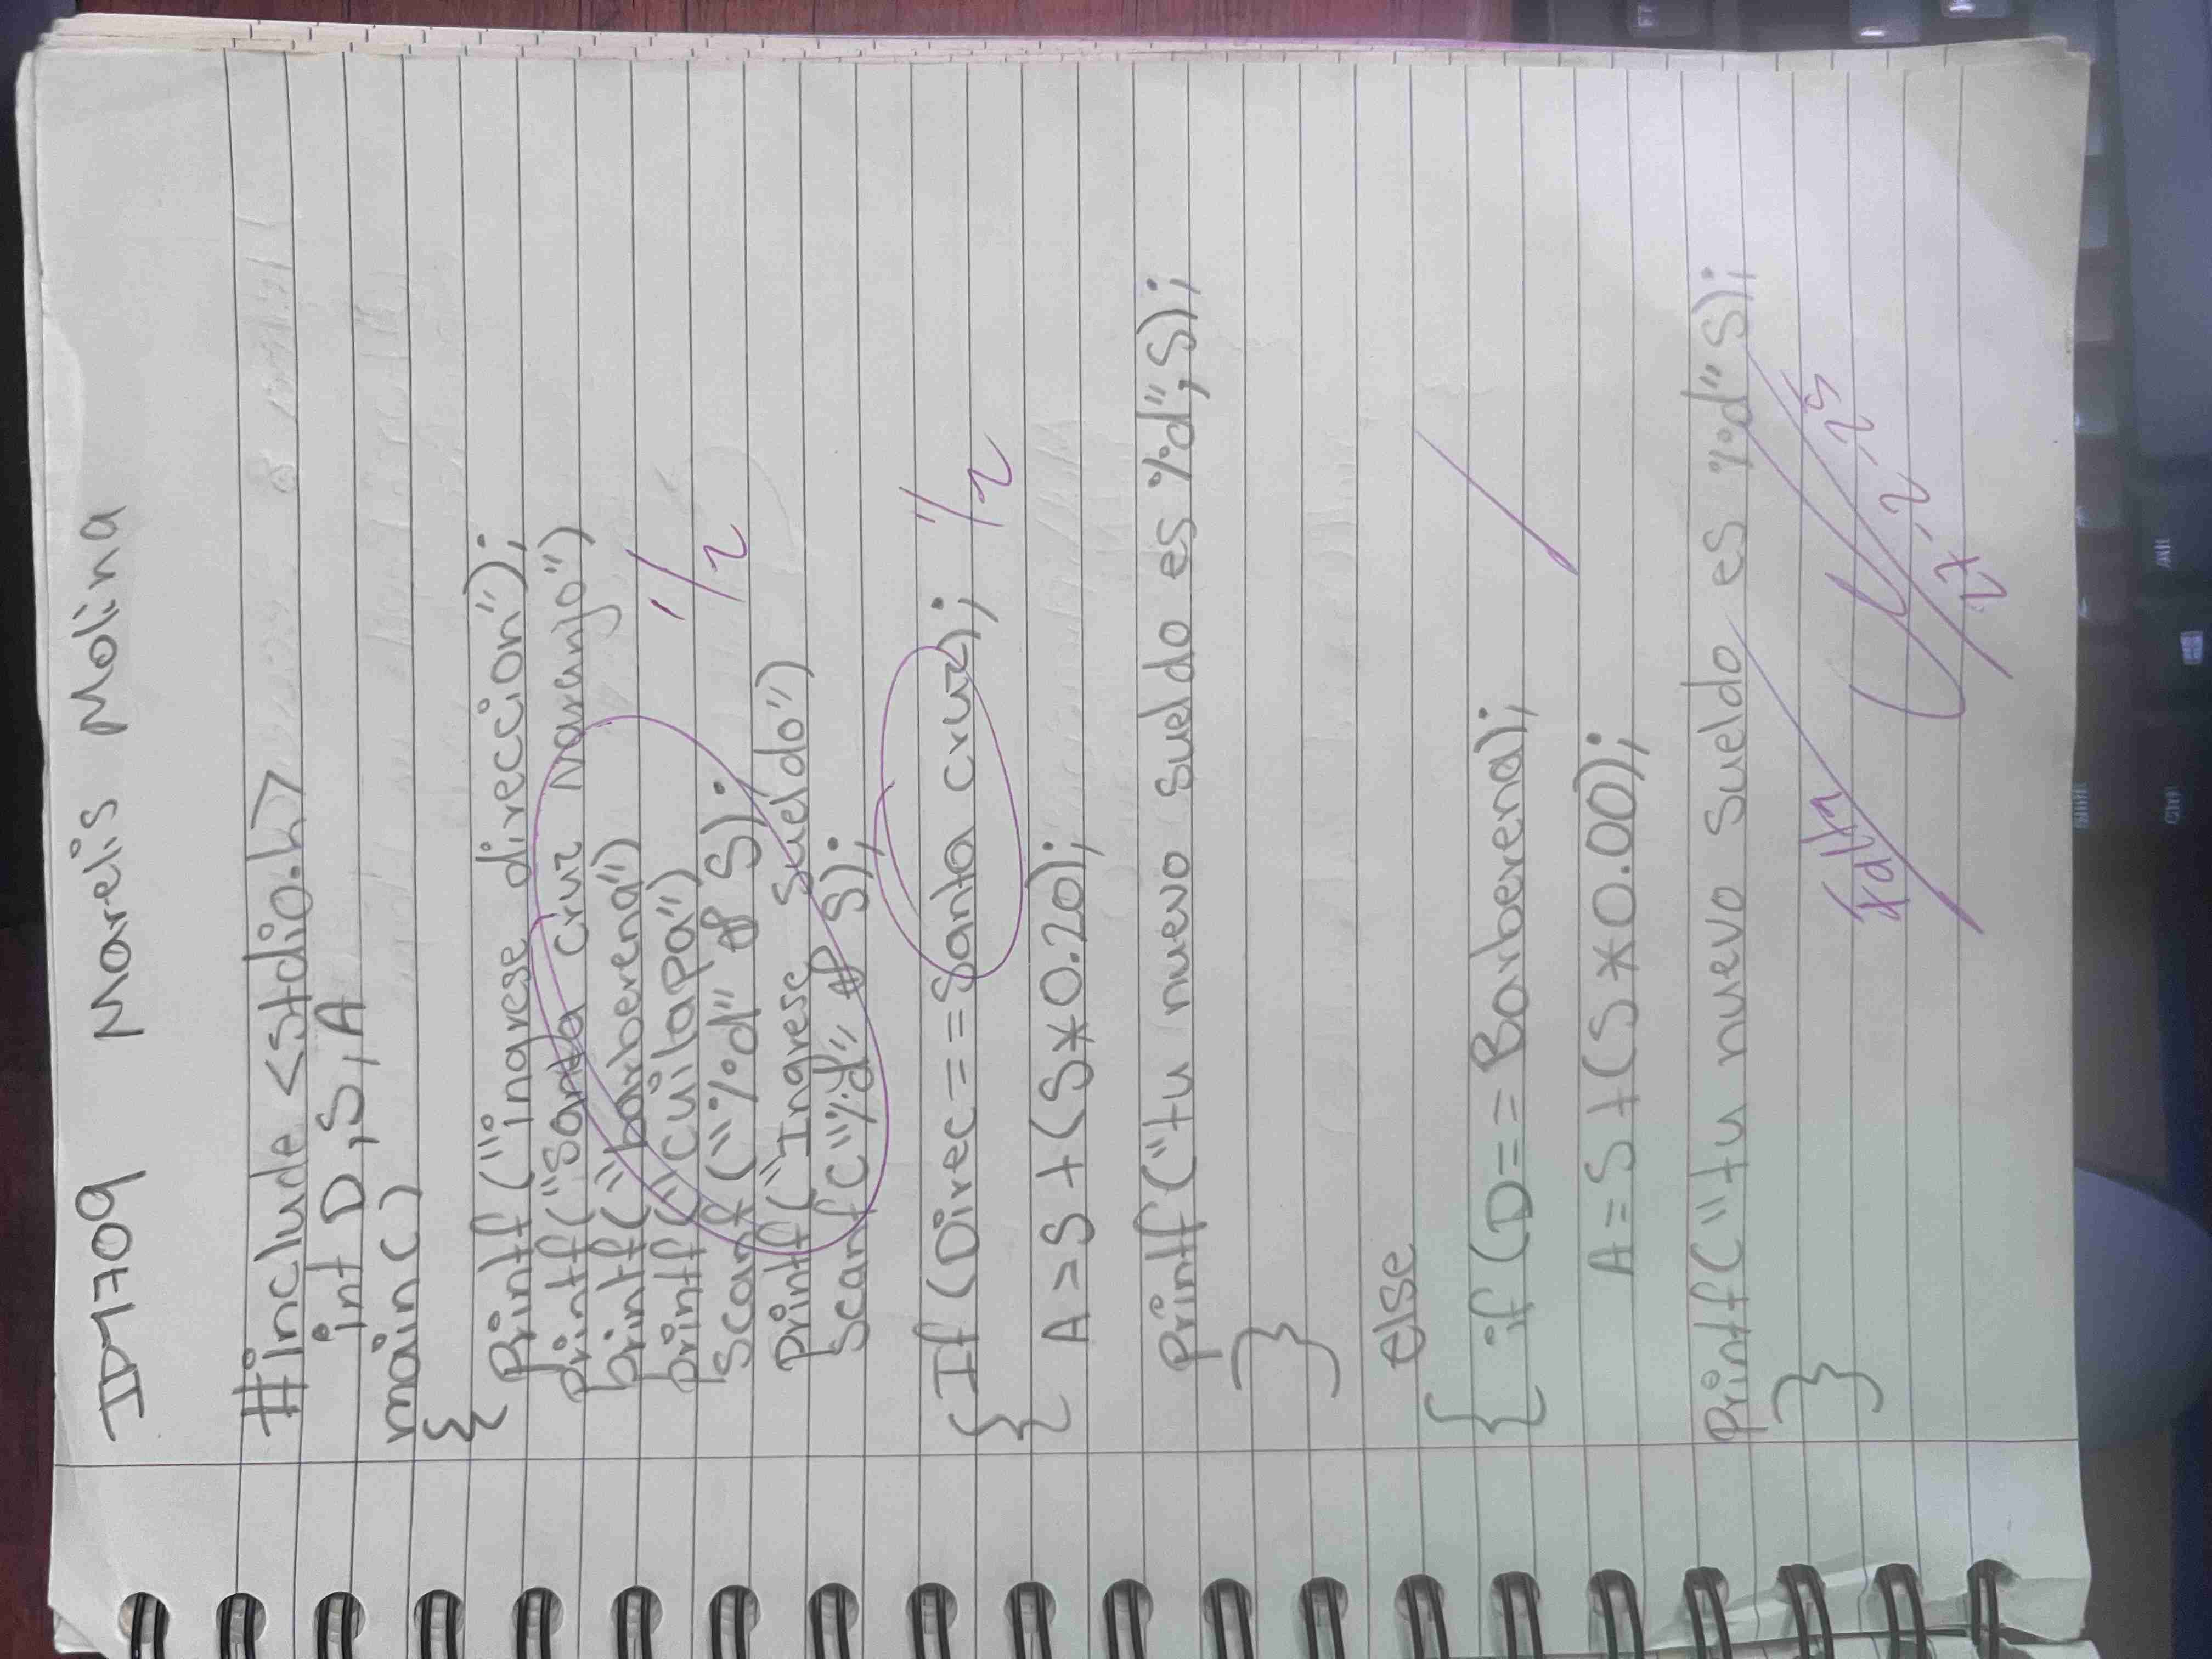 ID1709 Marelis Molina
#include <stdio.h>
int D,S,A
main()
{
Printf("ingrese direccion");
printf("Santa cruz Naranjo")
printf("barberena")
printf("cuilapa")
Scanf("%d" & S);
printf("Ingrese Sueldo")
Scanf("%d" & S);
1/2
{ If (Direc==Santa cruz); 1/2
A=S+(S*0.20);
Printf("tu nuevo sueldo es %d",S);
}
else
{ if (D==Barberena);
A=S+(S*0.00);
Printf("tu nuevo Sueldo es %d" S);
}
Falta
27-2-25